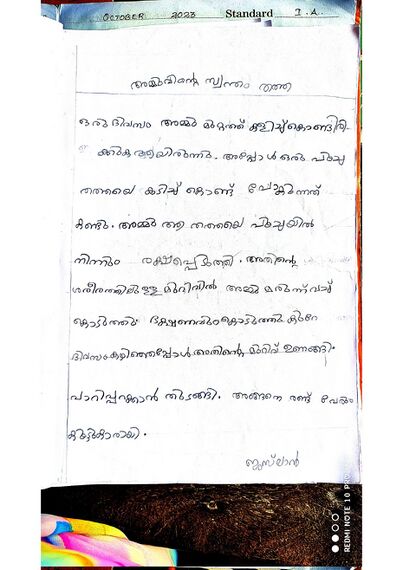 OCTOBER 2023 Standard I.A.
അമ്മുവിന്റെ സ്വന്തം തത്ത
ഒരു ദിവസം അമ്മു മുറ്റത്ത് കളിച്ച്കൊണ്ടിരി-
ക്കുക ആയിരുന്നു. അപ്പോൾ ഒരു പൂച്ച
തത്തയെ കടിച്ച് കൊണ്ട് പോകുന്നത്
കണ്ടു. അമ്മു ആ തത്തയെ പൂച്ചയിൽ
നിന്നും രക്ഷപ്പെടുത്തി. അതിന്റെ
ശരീരത്തിലുള്ള മുറിവിൽ അമ്മു മരുന്ന് വച്ച്
കൊടുത്തു ഭക്ഷണവും കൊടുത്തു കുറേ
ദിവസം കഴിഞ്ഞപ്പോൾ അതിന്റെ മുറിവ് ഉണങ്ങി.
പാറിപ്പറക്കാൻ തുടങ്ങി. അങ്ങനെ രണ്ട് പേരും
കൂട്ടുകാരായി.
REDMI NOTE 10 PRO